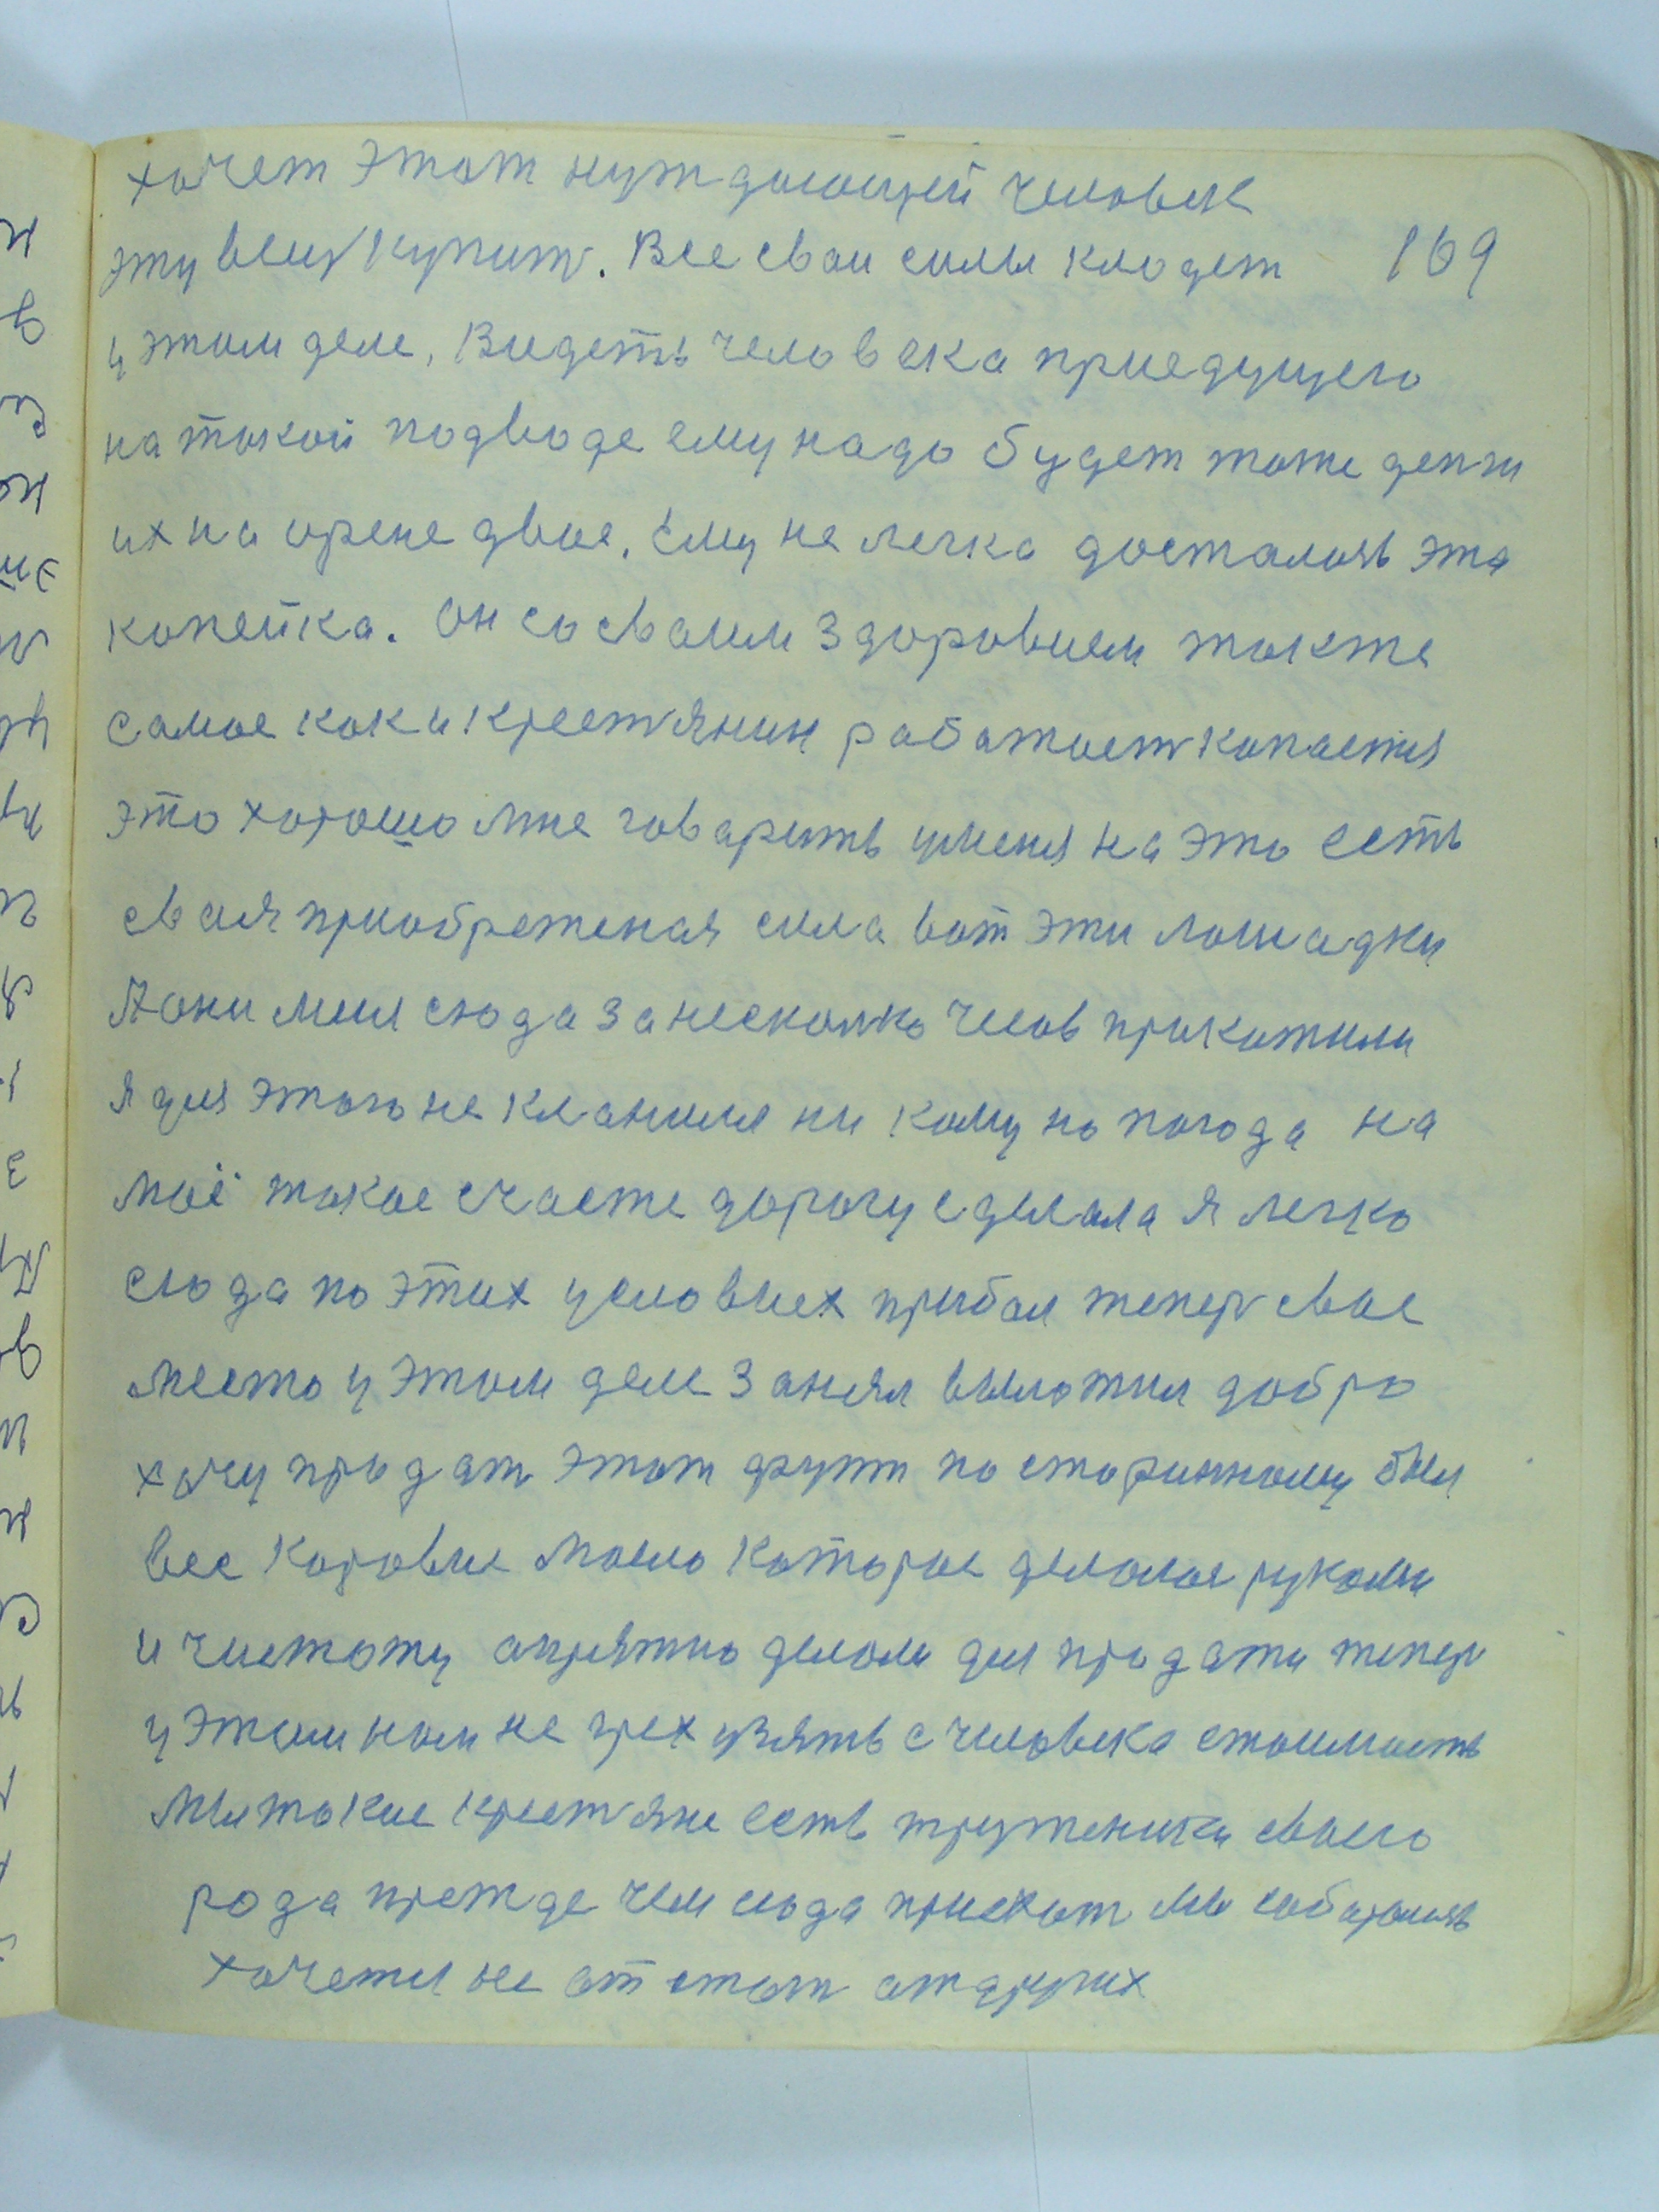 хочет этот нуждающей человек
эту вещ купит. Все сваи силы кладет 169
у этом деле, Видеть человека приедущего
на такой подводе ему надо будет тоже денги
их на арене двое. Ему не легка досталась эта
копейка. Он со сваим здоровием такте
самое как и крестянин работает копается
это хорошо мне говарить уменя на это есть
свая приобретеная сила вот эти лошадки
А они мня сюда за несколко часов прикатили
я для этого не кланился ни кому но погода на
моё такое счасте дорогу сделала я легко
сюда по этих условиех прибыл тепер свое
место у этом деле занял выложил добро
хочу продат этот фрунт по старинному был
вес коровие масло которое делалос руками
и чистоту апрятно делали для продажи тепер
у этом нам не грех узять с человека стоимость
Мы такие крестяне есть труженики своего
рода прежде чем сюда приехат мы собирались
хочется не отстат от других